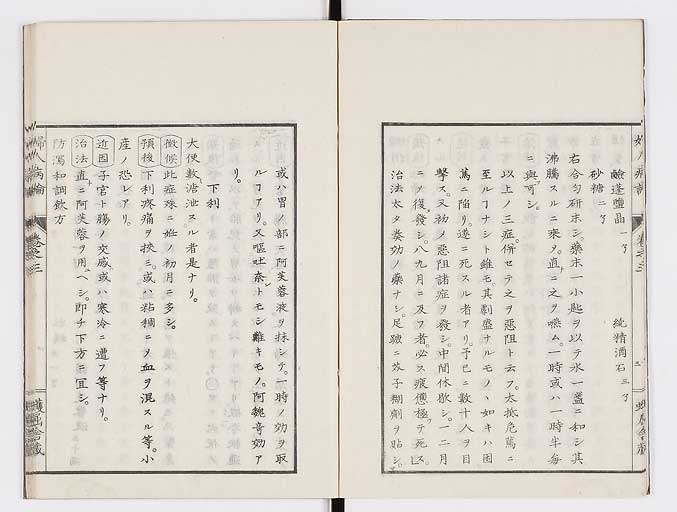 鹼蓬鹽晶 一ゝ 純精酒石 三ゝ
砂糖 二ゝ
右合匀研末シ藥末一小匙ヲ以テ水一盞ニ和シ其
沸騰スルニ乘シ直ニ之ヲ嚥ム一時或ハ一時半毎
ニ與フ可シ
以上ノ三症併セテ之ヲ惡阻ト云フ大抵危篤ニ
至ルナシト雖モ其劇盛ナルモノハ如キハ困
篤ニ陷リ遂ニ死スル者アリ予已ニ數十人ヲ目
擊ス又初メ惡阻諸症ヲ發シ中間休歇シ一二月
ニ乄復發シ八九月ニ及フ者ハ必ス疲憊極テ死ス
治法太タ奏効ノ藥ナシ足蹠ニ芥子糊劑ヲ貼シ
或ハ胃ノ部ニ阿芙蓉液ヲ抹シテ一時ノ効ヲ取
ルコアリ又嘔吐奈トモシ難キモノ阿魏奇効ア
リ
下利
大便數溏泄スル者是ナリ
徴候 此症殊ニ姙ノ初月ニ多シ
預後 下利疼痛ヲ挾ミ或ハ粘稠ニ乄血ヲ混スル等小
産ノ恐レアリ
近因 子宮ト腸ノ交感或ハ寒冷ニ遭フ等ナリ
治法 直ニ阿芙蓉ヲ用ヘシ即チ下方ニ宜シ
防瀉和調飲方
婦人病論 卷之三